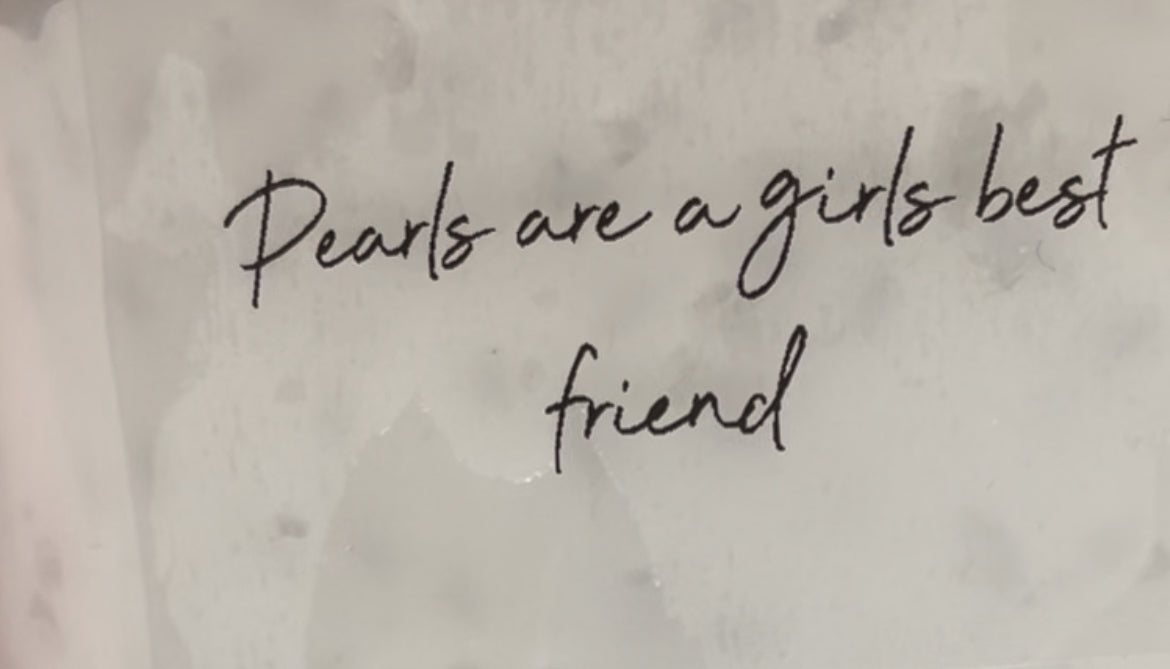 Pearls are a girls best
friend